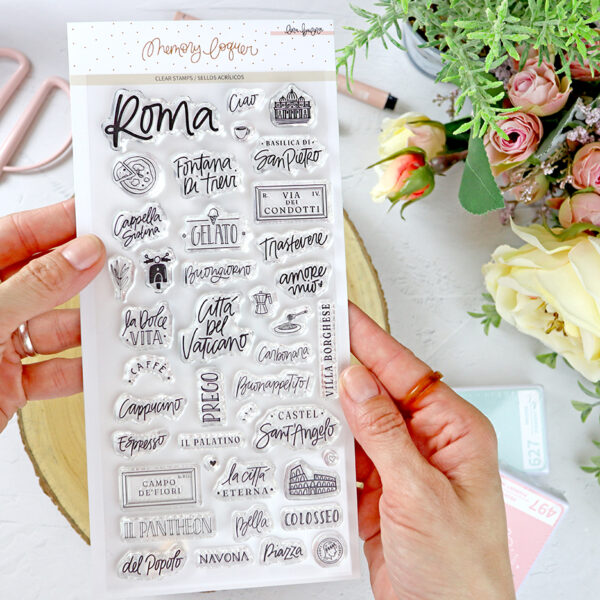 Memory Loquer
CLEAR STAMPS / SELLOS ACRÍLICOS
Roma
Ciao
BASILICA DI
San Pietro
Fontana
Di Trevi
R. VIA IV.
DEI
CONDOTTI
Cappella
Sistina
GELATO
Trastevere
Buongiorno
amore
mio
la Dolce
VITA
Città
del
Vaticano
VILLA BORGHESE
Carbonara
CAFFÈ
PREGO
Buonappetito!
Cappuccino
CASTEL
Sant'Angelo
Espresso
IL PALATINO
CAMPO
DE'FIORI
la città
ETERNA
IL PANTHEON
Bella
COLOSSEO
del Popolo
NAVONA
Piazza
627
497